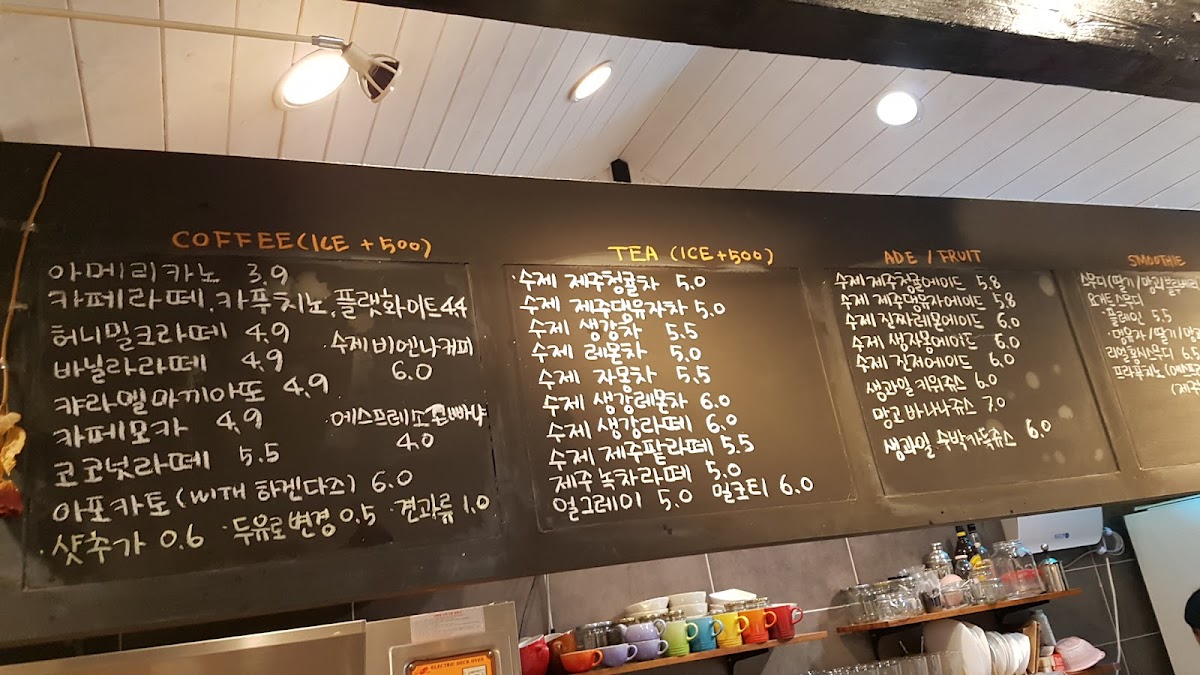 COFFEE (ICE +500)
아메리카노 3.9
카페라떼, 카푸치노, 플랫화이트 4.4
허니밀크라떼 4.9
바닐라라떼 4.9
캬라멜마끼아또 4.9
카페모카 4.9
코코넛라떼 5.5
아포카토 (WITH 하겐다즈) 6.0
· 샷추가 0.6 · 두유로변경 0.5 · 견과류 1.0
· 수제 비엔나커피
6.0
· 에스프레소 콘빠냐
4.0
TEA (ICE +500)
· 수제 제주청귤차 5.0
수제 제주댕유자차 5.0
수제 생강차 5.5
수제 레몬차 5.0
수제 자몽차 5.5
수제 생강레몬차 6.0
수제 생강라떼 6.0
수제 제주팥라떼 5.5
제주녹차라떼 5.0
얼그레이 5.0 밀크티 6.0
ADE / FRUIT
수제 제주청귤에이드 5.8
수제 제주댕유자에이드 5.8
수제 진짜레몬에이드 6.0
수제 생자몽에이드 6.0
수제 진저에이드 6.0
생과일 키위쥬스 6.0
망고 바나나쥬스 7.0
생과일 수박가득쥬스 6.0
SMOOTHIE
스무디 (딸기/망고/블루베
요거트스무디
· 플레인 5.5
· 댕유자/딸기/망
리얼홍시스무디 6.
프라푸치노 (에스프
(제주
ELECTRIC DECK OVEN